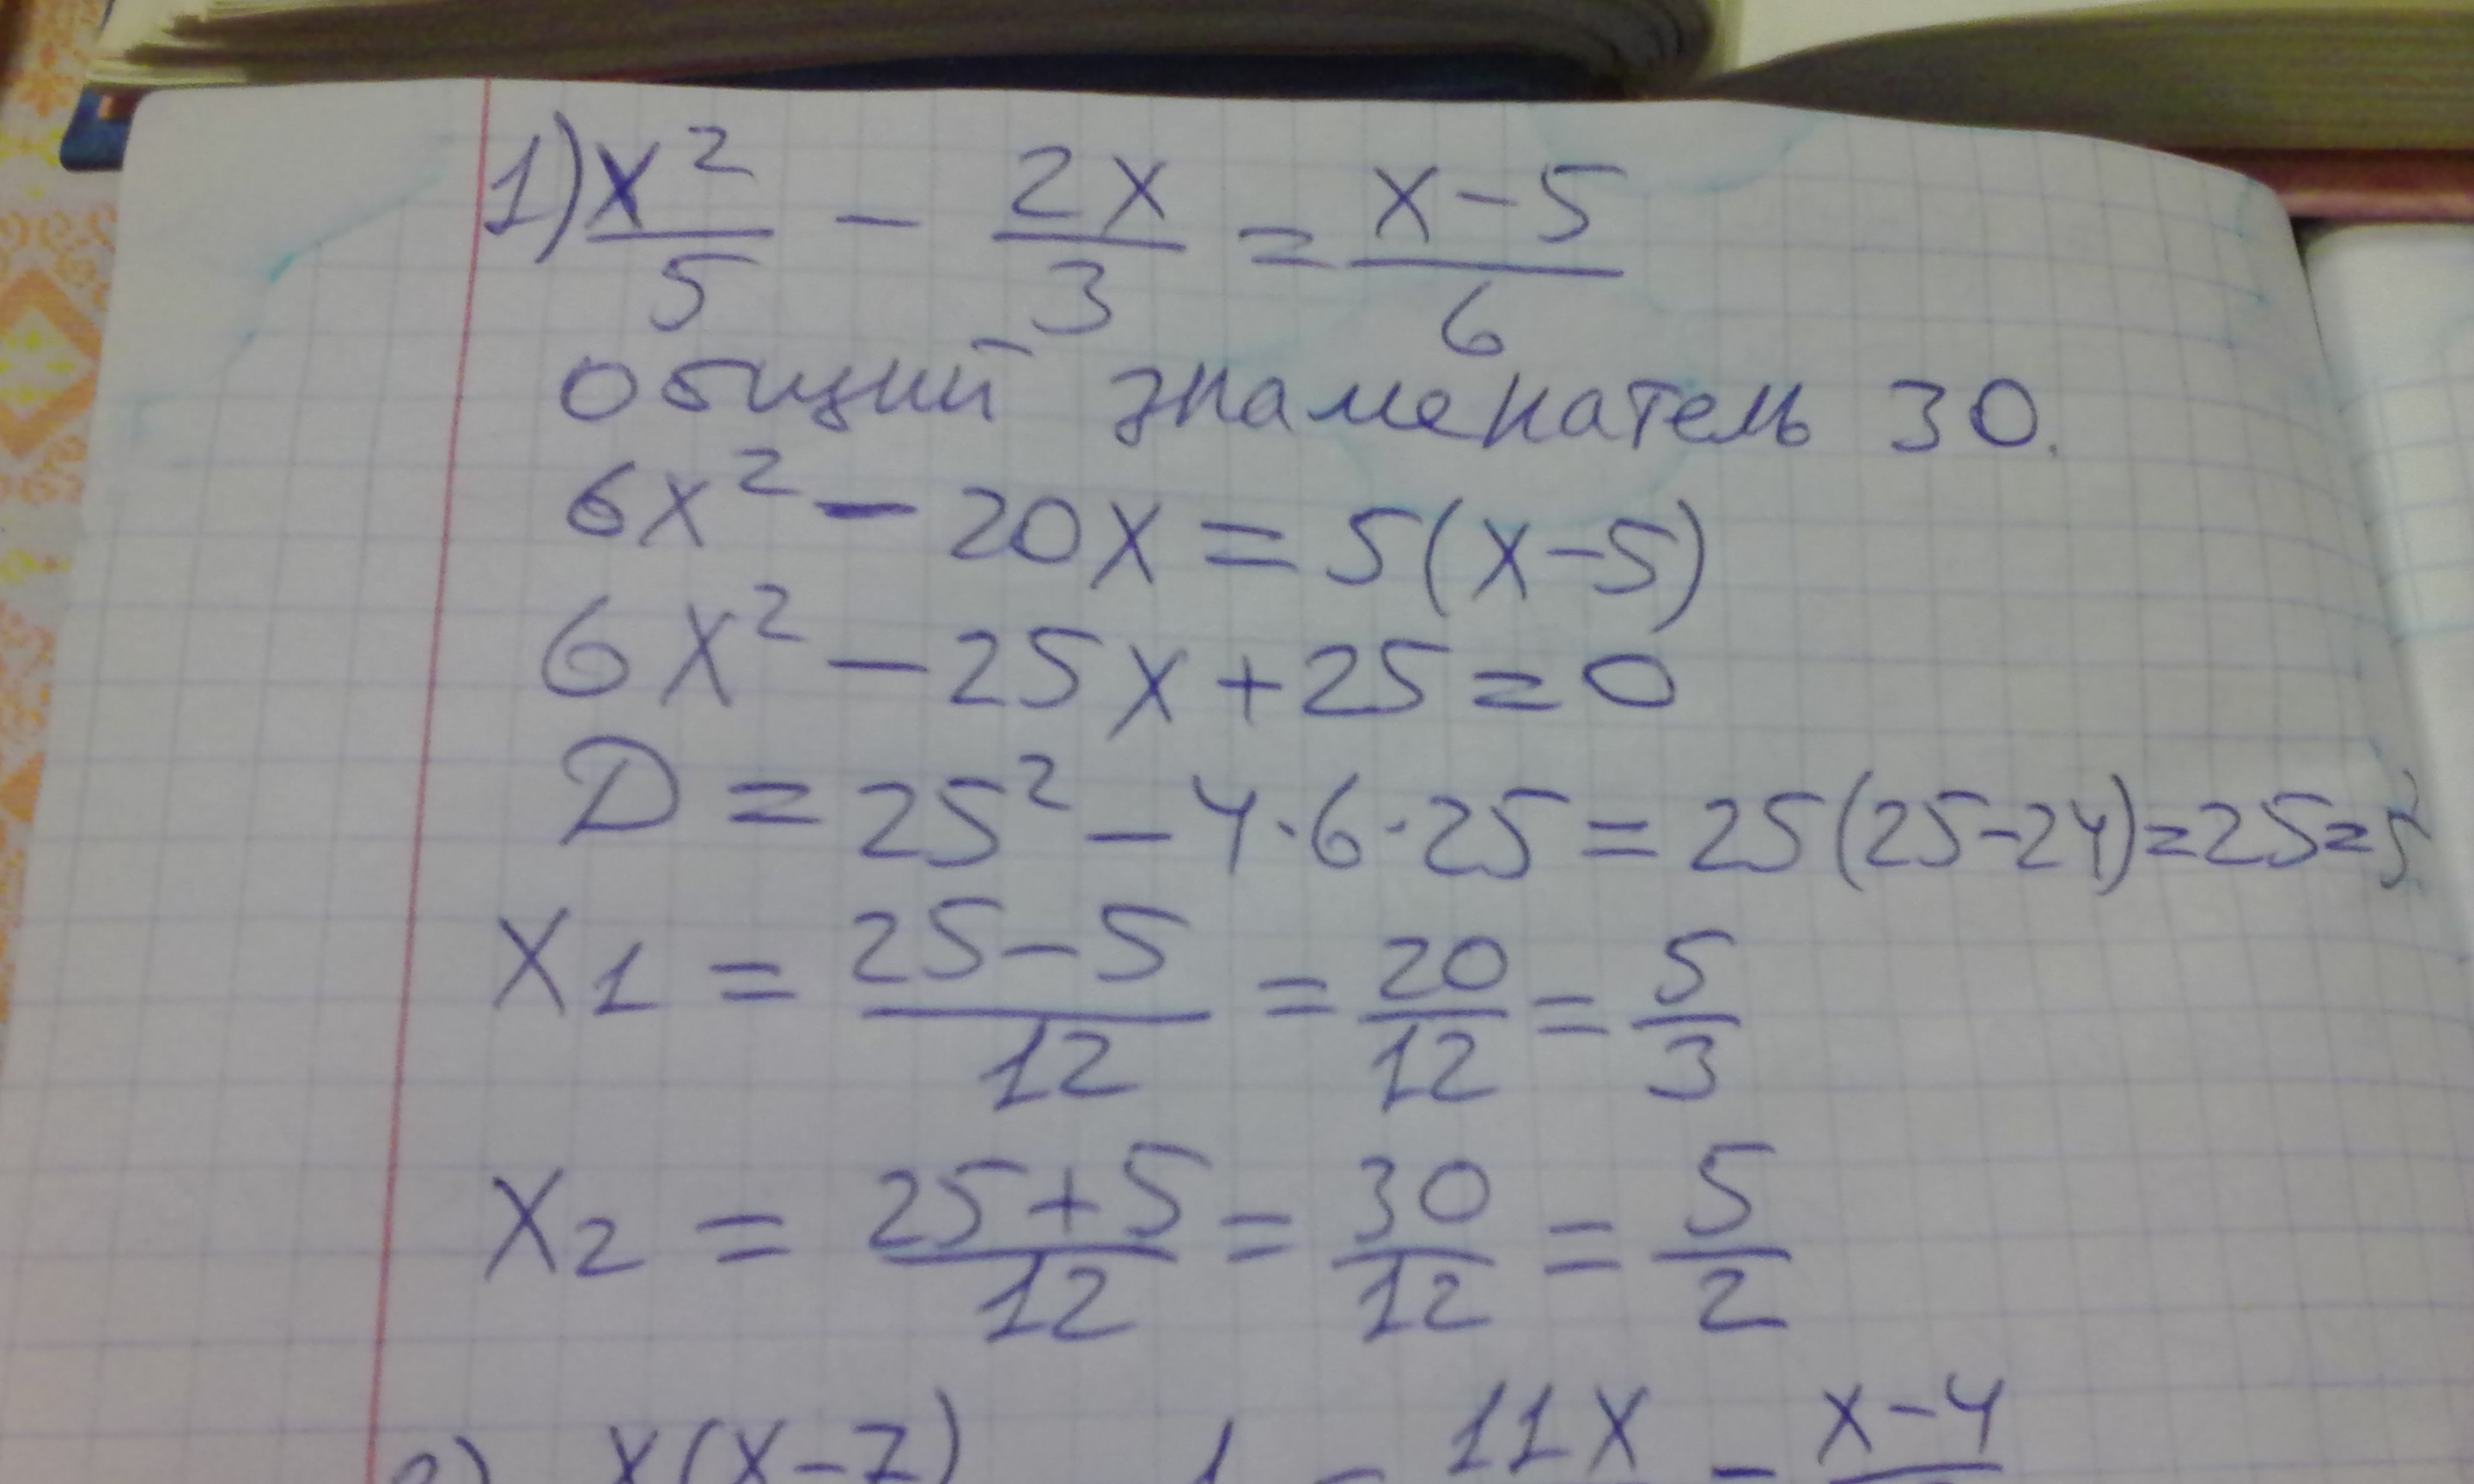 1) x²/5 - 2x/3 = x-5/6
Общий знаменатель 30.
6x² - 20x = 5(x-5)
6x² - 25x + 25 = 0
D = 25² - 4·6·25 = 25(25-24) = 25 = 5²
x₁ = 25-5/12 = 20/12 = 5/3
x₂ = 25+5/12 = 30/12 = 5/2
x(x-7) 11x x-4